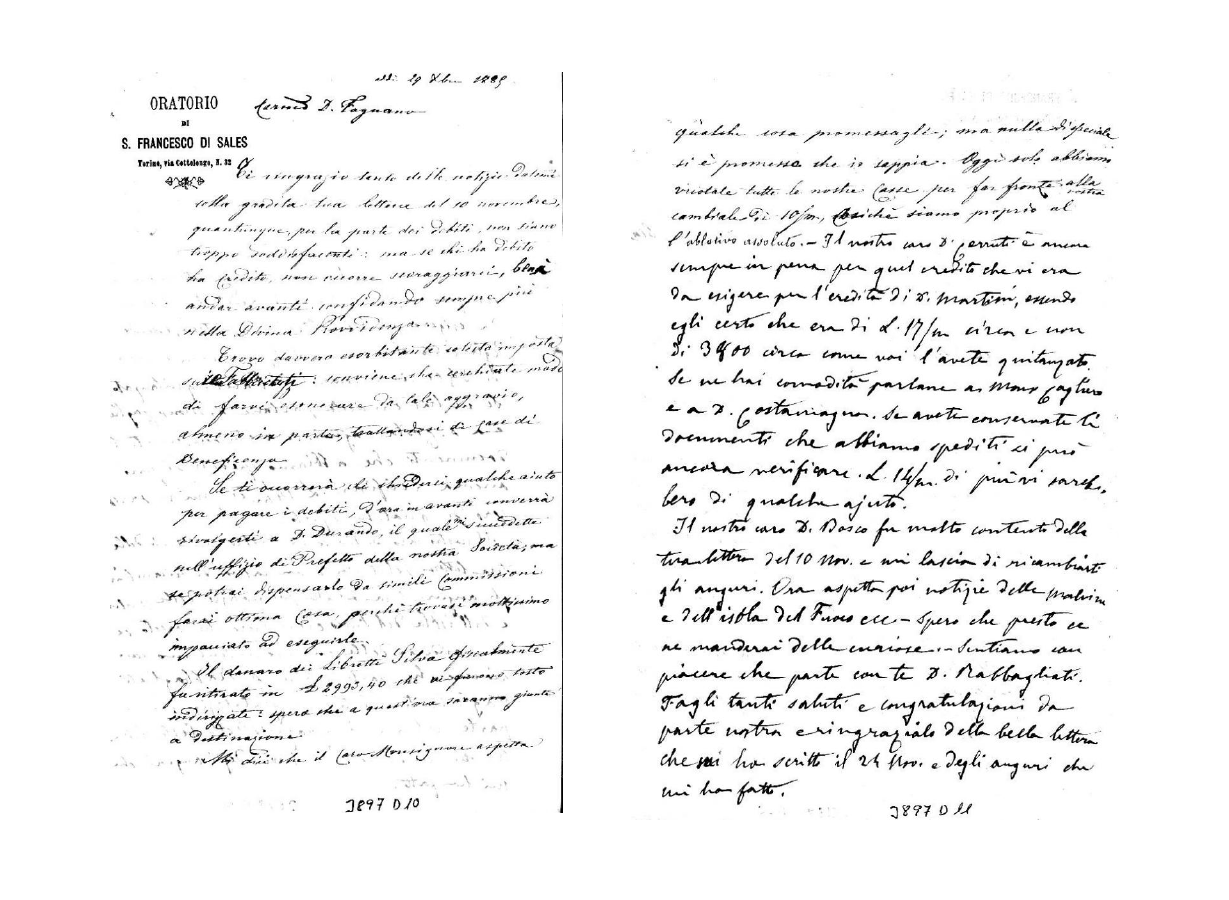 addì 29 Xbre 1885
ORATORIO
DI
S. FRANCESCO DI SALES
Torino, via Cottolengo, N. 32
D. Fagnano
Ti ringrazio tanto delle notizie datemi
colla gradita tua lettera del 10 novembre,
quantunque, per la parte dei debiti, non siano
troppo soddisfacenti: ma se chi ha debito
ha credito, non occorre scoraggiarci, bensì
andar avanti confidando sempre più
nella Divina Provvidenza.
Trovo davvero esorbitante cotesta imposta
: conviene che cerchiate modo
di farvi esonerare da tale aggravio,
almeno in parte, trattandosi di case di
Beneficenza.
Se ti occorrerà di chiederci qualche aiuto
per pagare i debiti, d'ora in avanti converrà
rivolgerti a D. Durando, il quale mi succedette
nell'uffizio di Prefetto della nostra Società; ma
se potrai dispensarlo da simili Commissioni
farai ottima Cosa, perchè trovasi moltissimo
impacciato ad eseguirle.
Il danaro dei Libretti Silva finalmente
fu ritirato in £ 2993,40 che vi furono tosto
indirizzate: spero che a quest'ora saranno giunte
a destinazione.
Mi dici che il Caro Monsignore aspetta
J897 D 10
qualche cosa promessagli; ma nulla di speciale
si è promesso che io sappia. Oggi solo abbiamo
vuotate tutte le nostre Casse per far fronte alla nostra
cambiale di 10/m, cosichè siamo proprio al
l'ablativo assoluto. - Il nostro caro D. Cerruti è ancora
sempre in pena per quel credito che vi era
da esigere per l'eredità di D. Martini, essendo
egli certo che era di £. 17/m circa e non
di 3800 circa come voi l'avete quitanzato.
Se ne hai comodità parlane a Mons Cagliero
e a D. Costamagna. Se avete conservate li
documenti che abbiamo spediti si può
ancora verificare. £. 14/m di più vi sareb-
bero di qualche ajuto.
Il nostro caro D. Bosco fu molto contento della
tua lettera del 10 Nov. e mi lascia di ricambiarti
gli auguri. Ora aspetta poi notizie delle Malvine
e dell'isola del Fuoco ecc - Spero che presto ce
ne manderai delle curiose. - Sentiamo con
piacere che parte con te D. Rabbagliati.
Fagli tanti saluti e congratulazioni da
parte nostra e ringrazialo della bella lettera
che mi ha scritto il 24 Nov. e degli auguri che
mi ha fatto.
J897 D 11